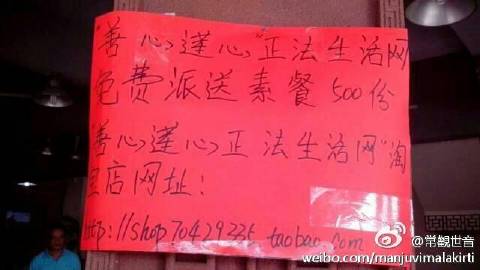 "善心莲心"正法生活网
免费派送素餐500份
"善心莲心正法生活网"淘
宝店网址:
http://shop70429235.taobao.com
@常觀世音
weibo.com/manjuvimalakirti